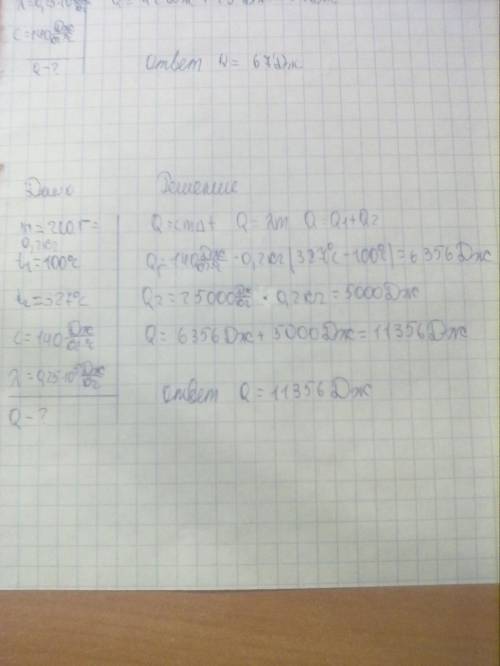 c = 140 Дж/кг°C
Q - ?
Ответ Q = 67 Дж
Дано
Решение
m = 200 г =
0,2 кг
t₁ = 100°C
t₂ = 327°C
c = 140 Дж/кг°C
λ = 0,25·10⁵ Дж/кг
Q - ?
Q = cmΔt Q = λm Q = Q₁ + Q₂
Q₁ = 140 Дж/кг°C · 0,2 кг (327°C - 100°C) = 6356 Дж
Q₂ = 25000 Дж/кг · 0,2 кг = 5000 Дж
Q = 6356 Дж + 5000 Дж = 11356 Дж
Ответ Q = 11356 Дж